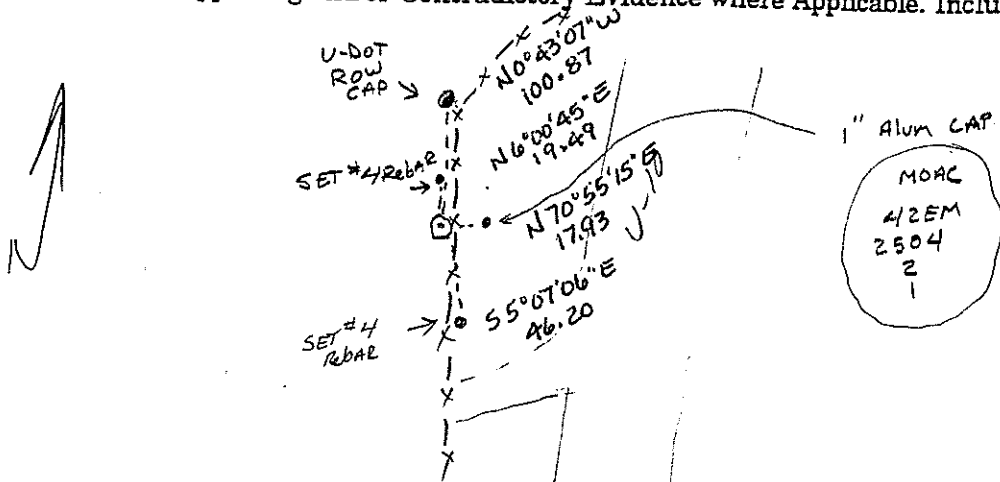 Contradictory Evidence where Applicable. Inclu
U-DOT
ROW
CAP
N0°43'07"W
100.87
N6°00'45"E
19.49
SET #4 RebAR
N70°55'15"E
17.93
1" Alum CAP
MOAC
42EM
2504
2
1
S5°07'06"E
46.20
SET #4
RebAR
N